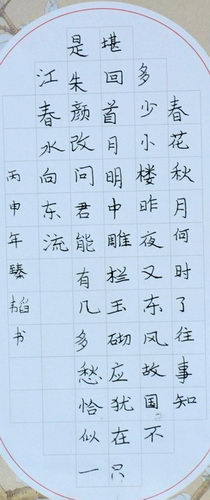 春花秋月何时了往事知
多少小楼昨夜又东风故国不
堪回首月明中雕栏玉砌应犹在只
是朱颜改问君能有几多愁恰似一
江春水向东流
丙申年臻韬书